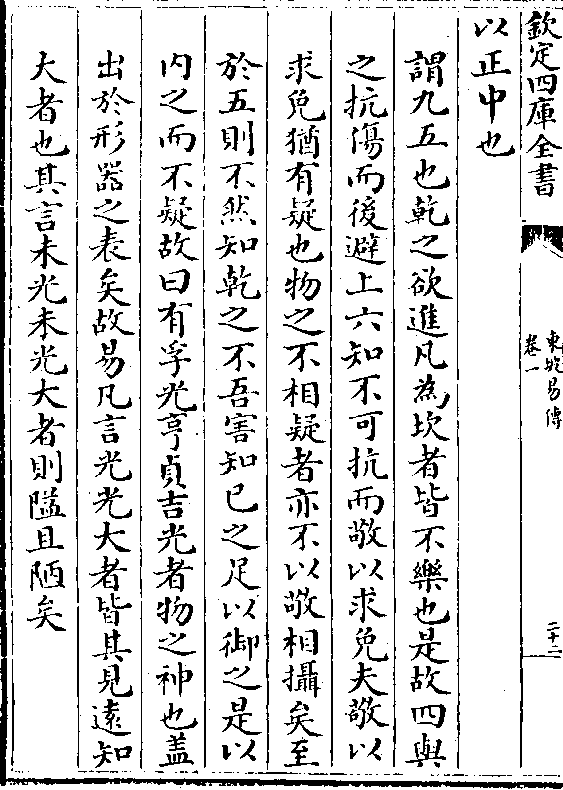 欽定四庫全書
東坡易傳
卷一
二十二
以正中也
謂九五也乾之欲進凡為坎者皆不樂也是故四與
之抗傷而後避上六知不可抗而敬以求免夫敬以
求免猶有疑也物之不相疑者亦不以敬相攝矣至
於五則不然知乾之不吾害知已之足以御之是以
内之而不疑故曰有孚光亨貞吉光者物之神也盖
出於形器之表矣故易凡言光光大者皆其見遠知
大者也其言未光未光大者則隘且陋矣